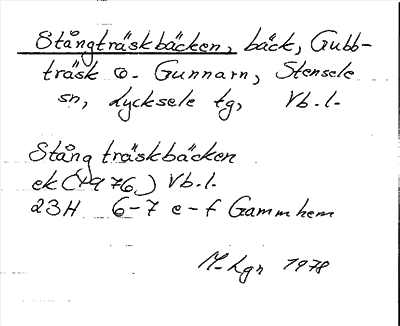 Stångträskbäcken, bäck, Gubb-
träsk o. Gunnarn, Stensele
sn, Lycksele tg, Vb.l.
Stångträskbäcken
ek (1976) Vb.l.
23H 6-7 e-f Gammhem
M-Lgn 1978